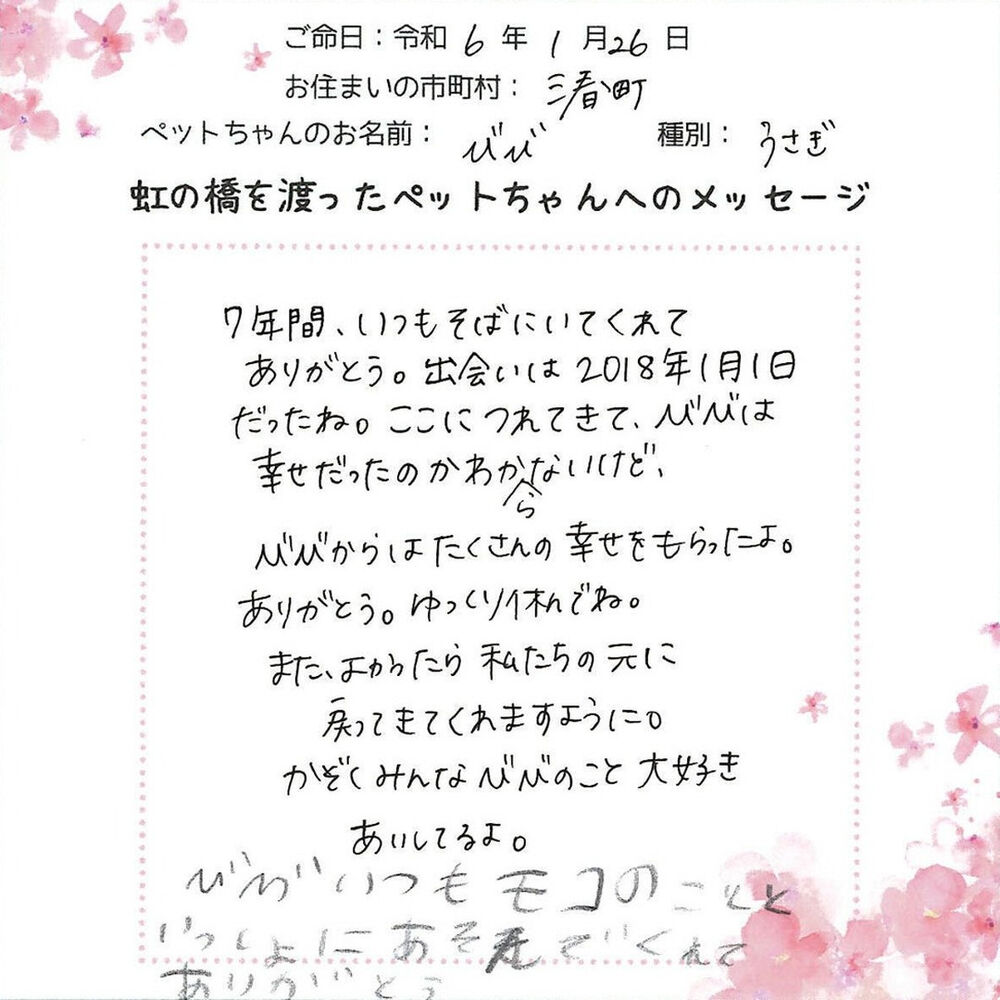 ご命日：令和 6 年 1 月26 日
お住まいの市町村： 三春町
ペットちゃんのお名前： びび 種別： うさぎ
虹の橋を渡ったペットちゃんへのメッセージ
7年間、いつもそばにいてくれて
ありがとう。出会いは 2018年1月1日
だったね。ここにつれてきて、びびは
幸せだったのかわからないけど、
びびからはたくさんの幸せをもらったよ。
ありがとう。ゆっくり休んでね。
また、よかったら私たちの元に
戻ってきてくれますように。
かぞくみんなびびのこと大好き
あいしてるよ。
びびいつもモコのことと
いっしょにあそんでくれて
ありがとう